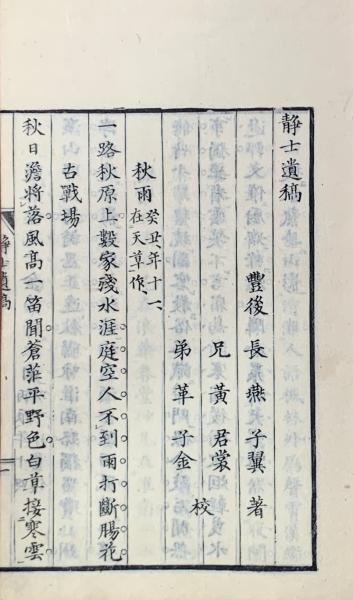 靜士遺稿
豐後 長燕 子翼 著
兄 黃 君裳
弟 革 子金
校
秋雨 癸丑、年十一、在天草作、
一路秋原上數家殘水涯庭空人不到雨打斷腸花
古戰場
秋日澹將落風高一笛聞蒼茫平野色白草接寒雲
靜士遺稿
一